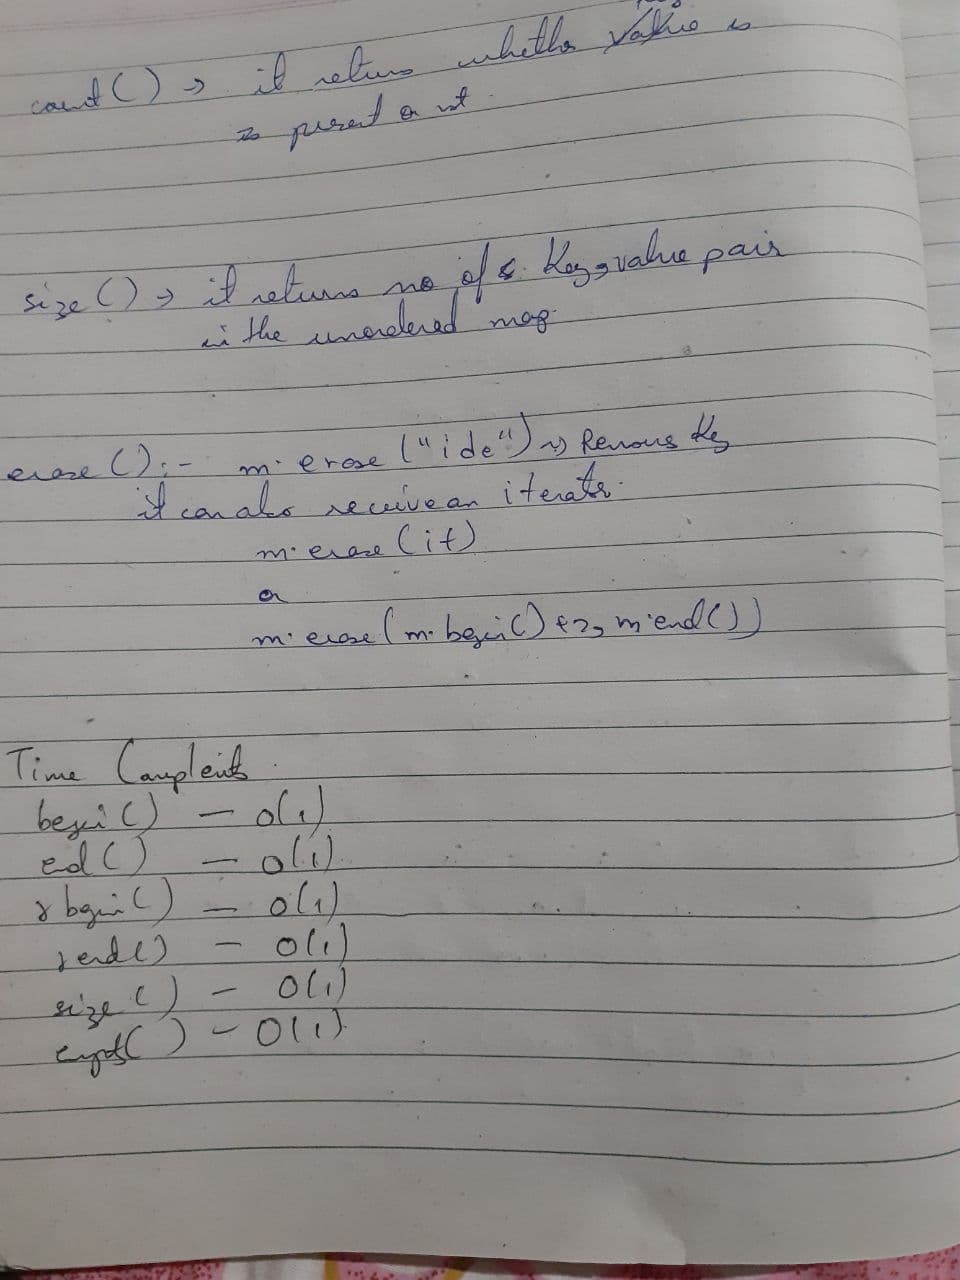 count() → it returns whether value is
is present or not
size() → it returns no of key, value pair
in the unordered map.
erase() :- m.erase("ide") → Removes key
it can also receive an iterator.
m.erase(it)
or
m.erase(m.begin()++, m.end())
Time Complexity
begin() - O(1)
end() - O(1)
rbegin() - O(1)
rend() - O(1)
size() - O(1)
empty() - O(1)